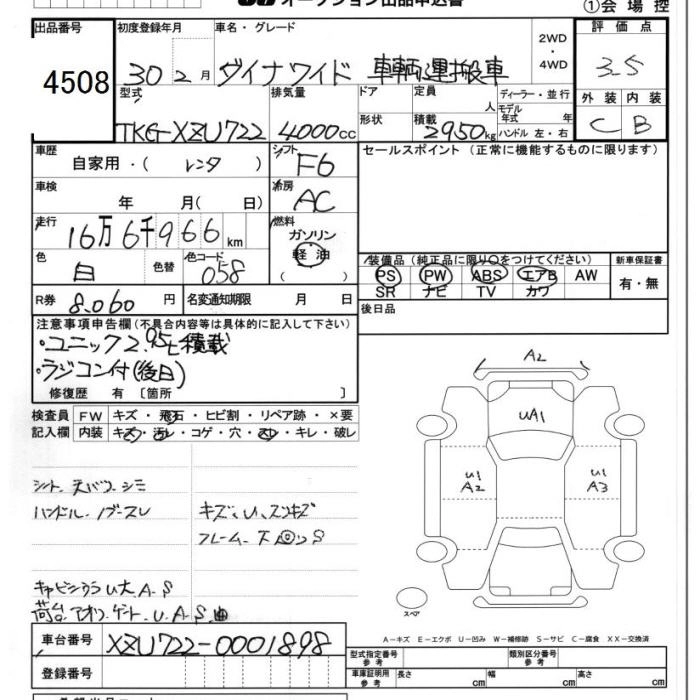 オークション出品申込書
①会場控
出品番号 初度登録年月 車名・グレード 2WD・4WD 評価点
4508 30 2月 ダイナワイド 車輌運搬車 3.5
型式 排気量 ドア 定員 人 ディーラー・並行 外装 内装
形状 積載 モデル年式 年 ハンドル 左・右
TKG-XZU722 4000cc 2950kg C B
車歴 自家用・( レンタ ) シフト F6 セールスポイント(正常に機能するものに限ります)
車検 年 月( 日) 冷房 AC
走行 16万6千966 km 燃料 ガソリン 軽油 ( )
色 白 色替 色コード 058 装備品(純正品に限り○をつけてください) 新車保証書
PS PW ABS エアB AW 有・無
SR ナビ TV カワ
R券 8.060円 名変通知期限 月 日 後日品
注意事項申告欄(不具合内容等は具体的に記入して下さい)
・ユニック2.95t積載
・ラジコン付(後日)
修復歴 有 〔箇所 〕
検査員 FW キズ・飛石・ヒビ割・リペア跡・×要
記入欄 内装 キズ・汚レ・コゲ・穴・スレ・キレ・破レ
A2
UA1
U1 A2
U1 A3
シート、天バリ、シミ
ハンドル、ノブースレ キズ、U、スリキズ
フレーム、下回りS
キャビンウラ U大 A.S
荷台アオリ、ゲート、U.A.S、曲
スペア
A-キズ E-エクボ U-凹み W-補修跡 S-サビ C-腐食 XX-交換済
車台番号 XZU722-0001898
型式指定番号 参考 類別区分番号 参考
登録番号 車庫証明用 参考 長さ cm 幅 cm 高さ cm